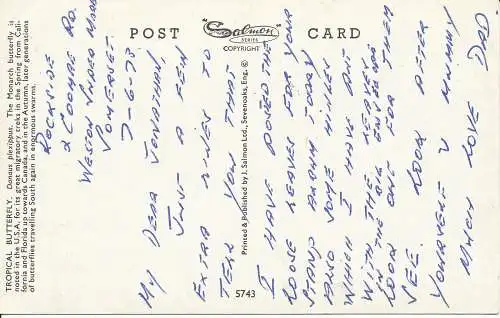 TROPICAL BUTTERFLY. Danaus plexippus. The Monarch butterfly is
noted in the U.S.A. for its great migratory treks in the Spring from Cali-
fornia and Florida up towards Canada, and in the Autumn, later generations
of butterflies travelling South again in enormous swarms.
POST
"Salmon"
SERIES
COPYRIGHT
CARD
Printed & Published by J. Salmon Ltd., Sevenoaks, Eng. ©
5743
ROCKSIDE
2 COOMBE RD.
WESTON SUPER MARE
SOMERSET
7-6-73
MY DEAR JONATHAN,
JUST A FEW
EXTRA LINES TO
TELL YOU THAT
I HAVE POSTED THE
LOOSE LEAVES FOR YOUR
STAMP ALBUM TODAY
ALSO SOME HINGES
WHICH I HAVE PUT
WITH THE LEAVES
IN THE BIG ENVELOPE
LOOK OUT FOR THEM
SEE. LOOK AFTER
YOURSELF & MUMMY
MUCH LOVE DAD